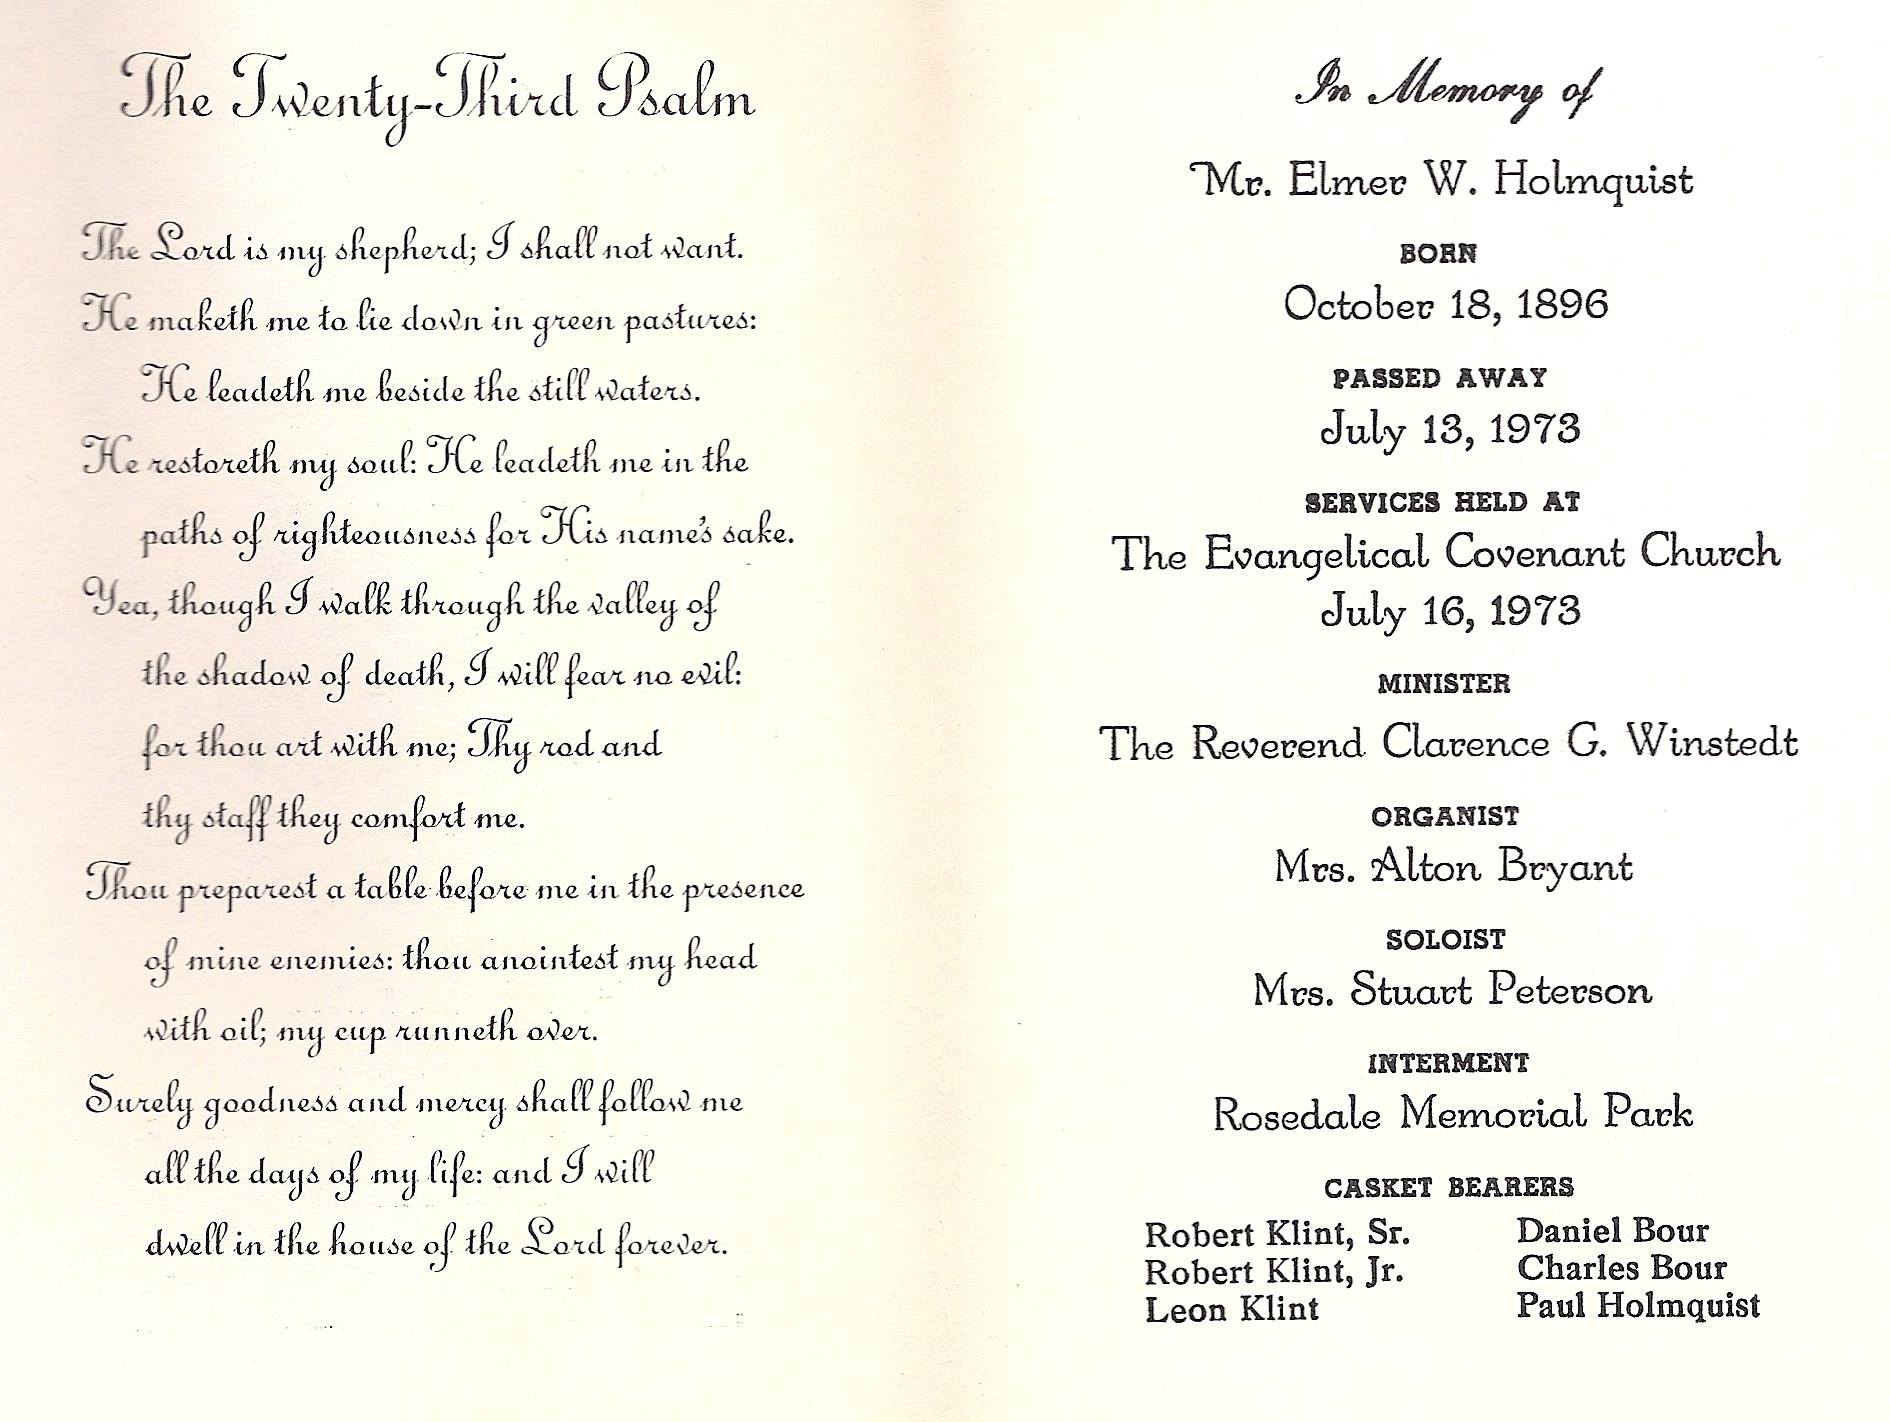 The Twenty-Third Psalm
The Lord is my shepherd; I shall not want.
He maketh me to lie down in green pastures:
He leadeth me beside the still waters.
He restoreth my soul: He leadeth me in the
paths of righteousness for His name's sake.
Yea, though I walk through the valley of
the shadow of death, I will fear no evil:
for thou art with me; Thy rod and
thy staff they comfort me.
Thou preparest a table before me in the presence
of mine enemies: thou anointest my head
with oil; my cup runneth over.
Surely goodness and mercy shall follow me
all the days of my life: and I will
dwell in the house of the Lord forever.
In Memory of
Mr. Elmer W. Holmquist
BORN
October 18, 1896
PASSED AWAY
July 13, 1973
SERVICES HELD AT
The Evangelical Covenant Church
July 16, 1973
MINISTER
The Reverend Clarence G. Winstedt
ORGANIST
Mrs. Alton Bryant
SOLOIST
Mrs. Stuart Peterson
INTERMENT
Rosedale Memorial Park
CASKET BEARERS
Robert Klint, Sr. Daniel Bour
Robert Klint, Jr. Charles Bour
Leon Klint Paul Holmquist